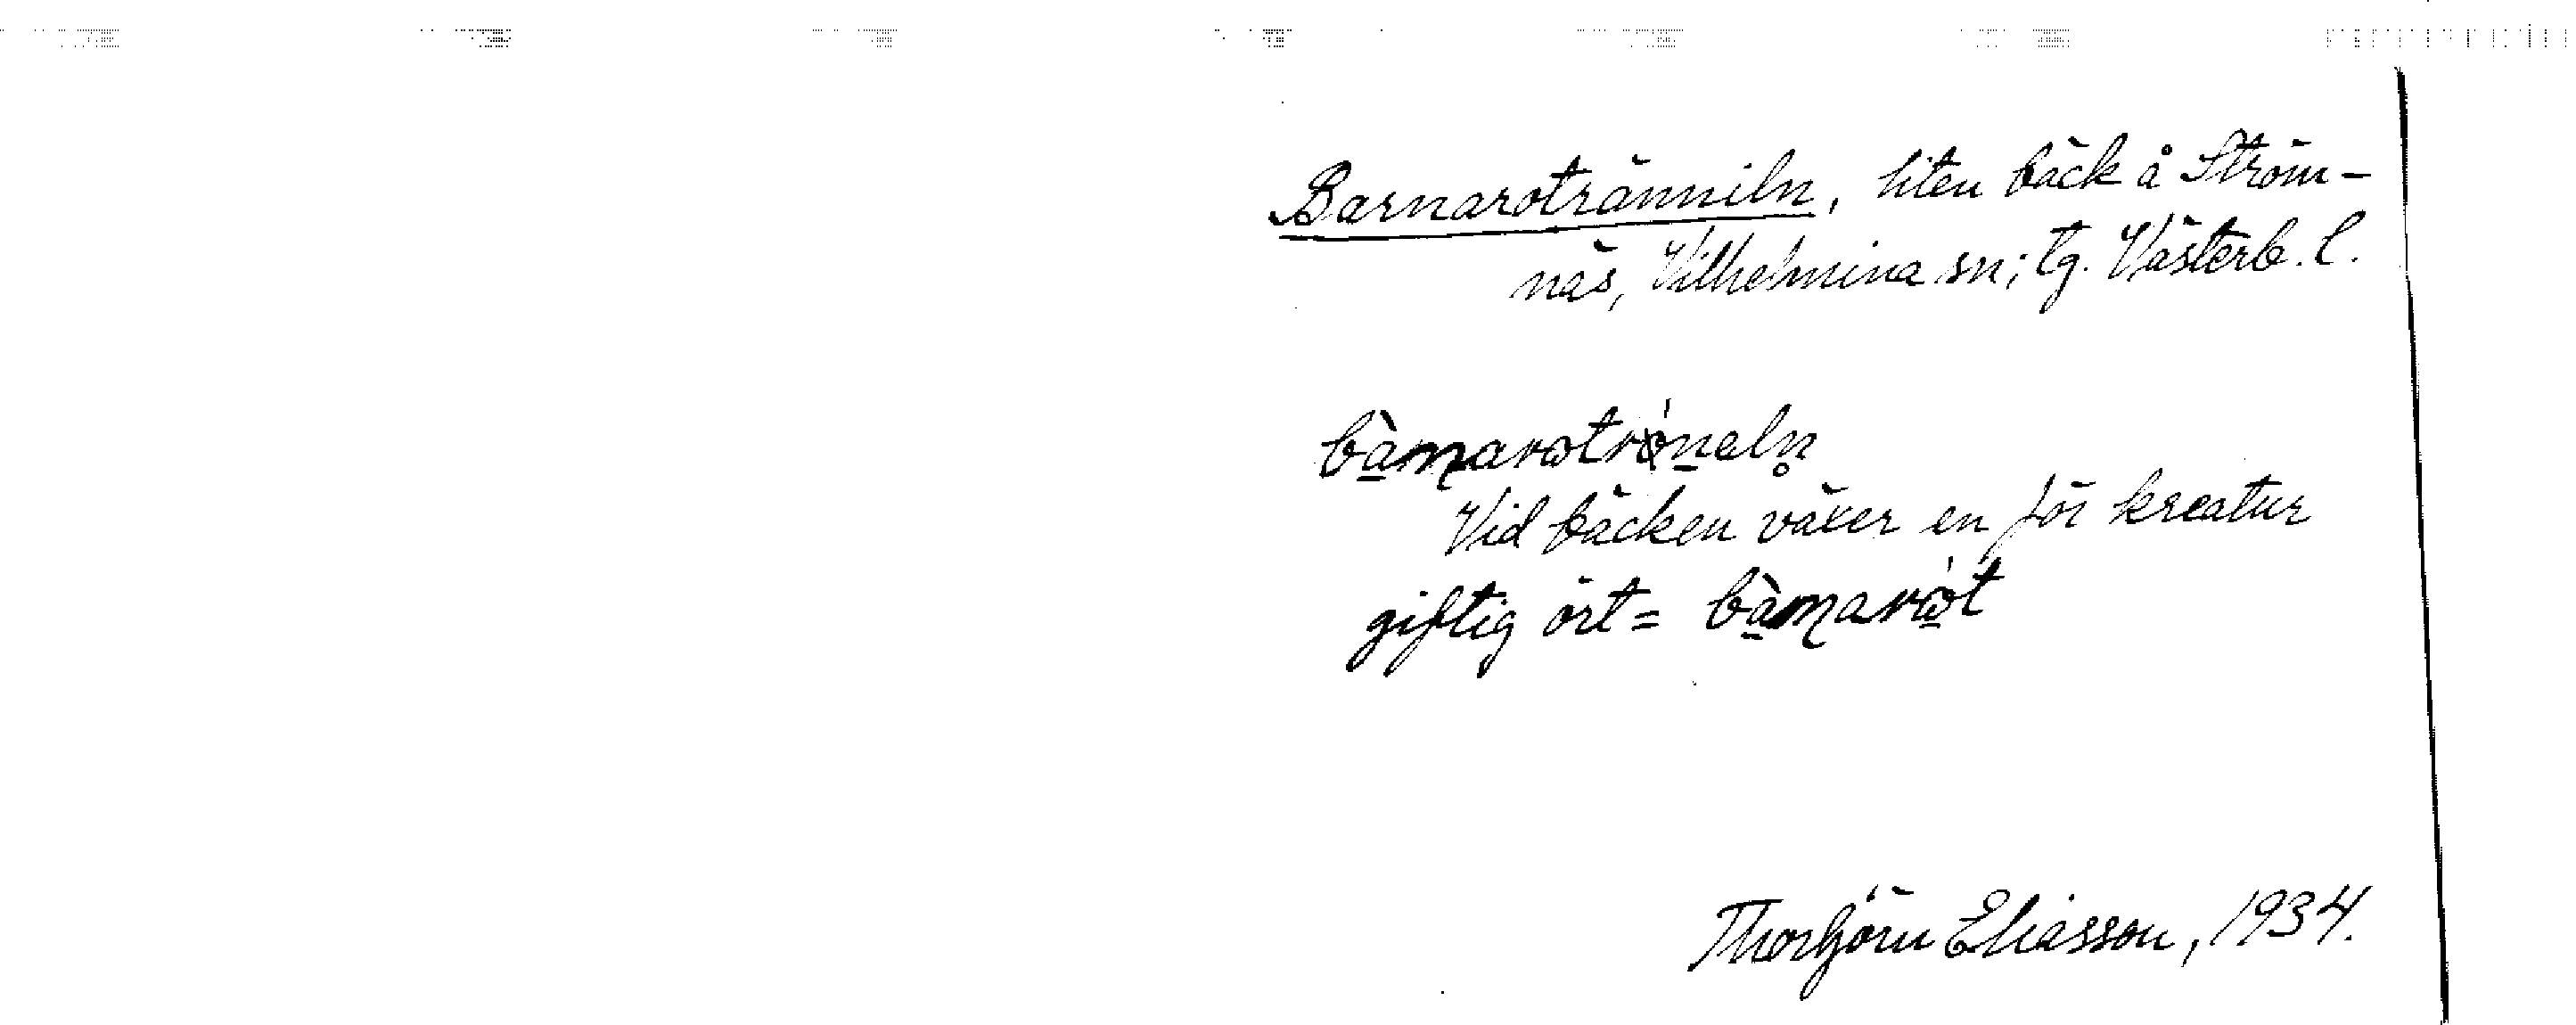 Barnarotränniln, liten bäck å Ström-
näs, Vilhelmina sn; Lg. Västerb. l.
Vid bäcken växer en för kreatur
giftig ört =
Thorbjörn Eliasson, 1934.